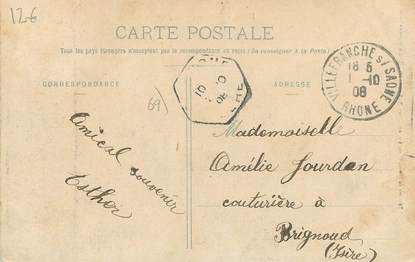 12€
CARTE POSTALE
Tous les pays étrangers n'acceptent pas la correspondance au recto (Se renseigner à la Poste)
CORRESPONDANCE
ADRESSE
VILLEFRANCHE s/ SAONE
18 5
1 -10
08
RHONE
10
08
69)
Amical souvenir
Esther
Mademoiselle
Amélie Jourdan
couturière à
Brignoud
(Isère)